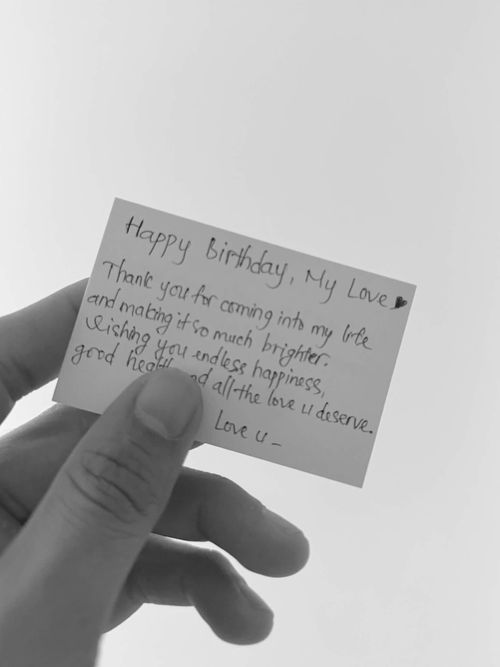 Happy Birthday, My Love ♥
Thank you for coming into my life
and making it so much brighter.
Wishing you endless happiness,
good health and all the love u deserve.
Love u -